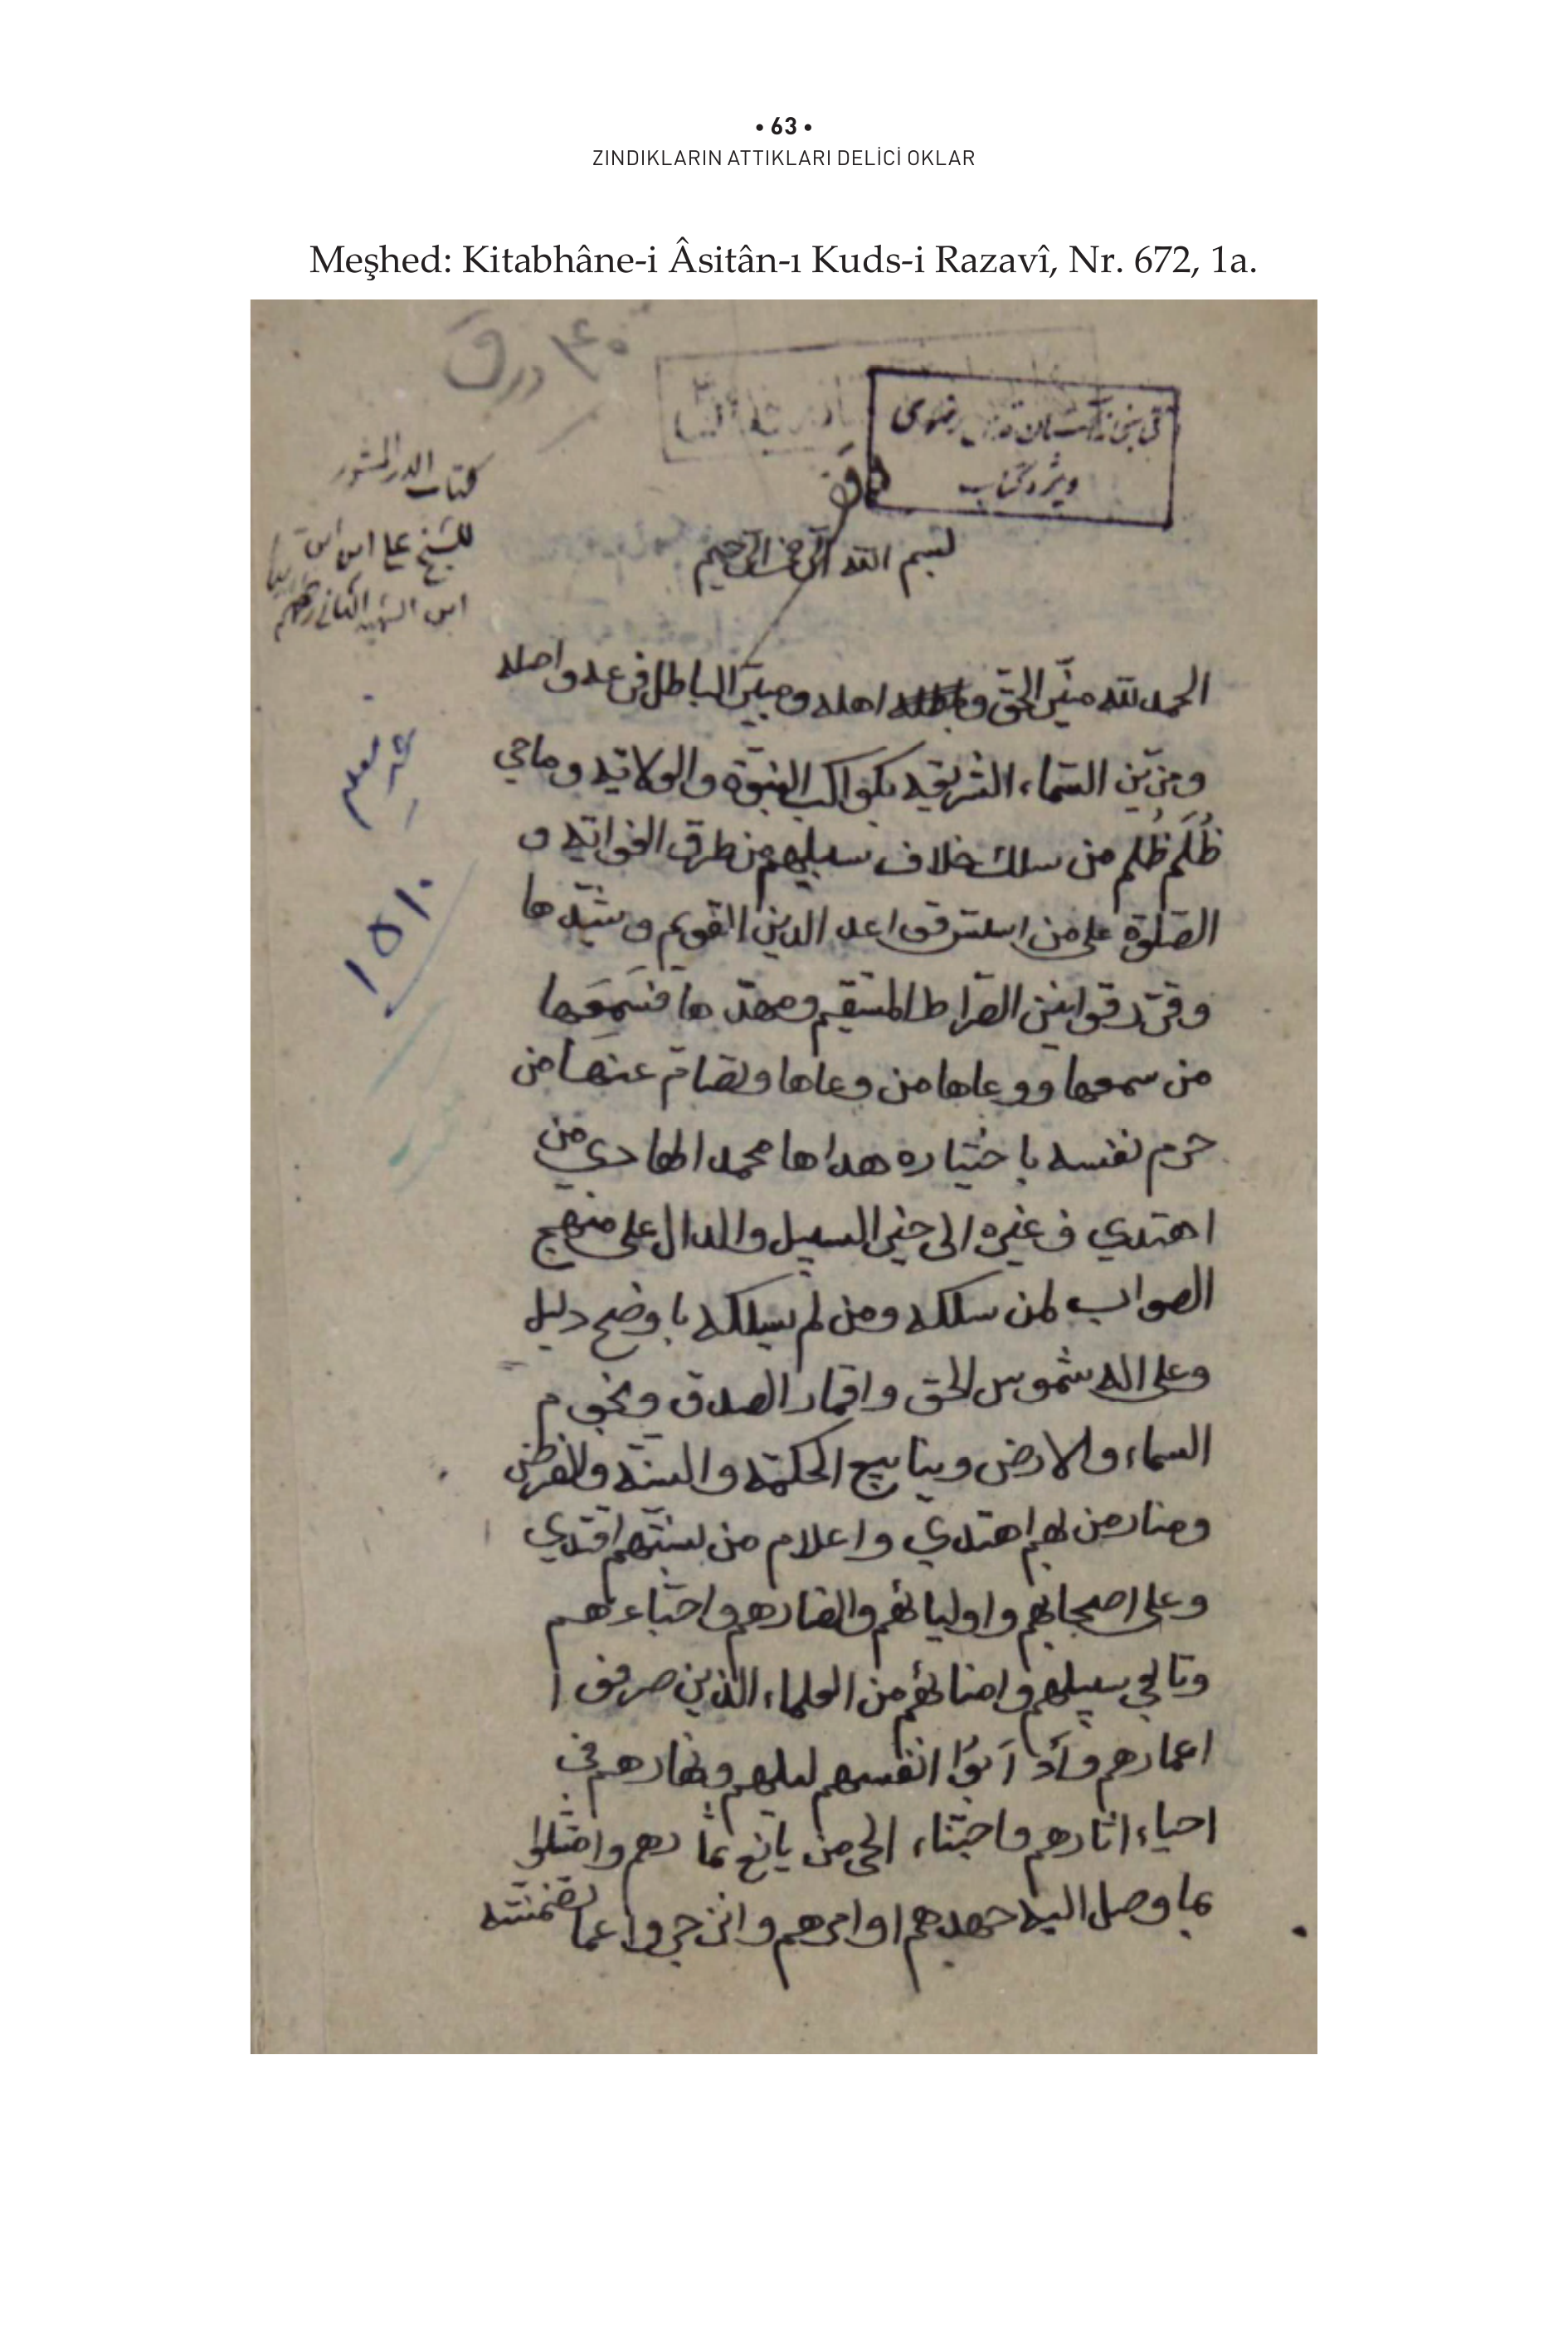 • 63 •
ZINDIKLARIN ATTIKLARI DELİCİ OKLAR
Meşhed: Kitabhâne-i Âsitân-ı Kuds-i Razavî, Nr. 672, 1a.
۴۰ ورق
ویژه کتاب
كتاب الدر المنثور
للشيخ علي ابن ابن
ابن الشهيد الثاني
بسم الله الرحمن الرحيم
الحمد لله منير الحق واهله ومبير الباطل فرعه واصله
ومزين السماء الشريعة بكواكب النبوة والولاية وماحي
ظُلَم ظُلم من سلك خلاف سبيلهم من طرق الغواية و
الصلوة على من اسس قواعد الدين القويم وشيدها
وقرر قوانين الصراط المستقيم ومهدها فسمعها
من سمعها ووعاها من وعاها وتصامّ عنها من
حرم نفسه باختياره هداها محمد الهادي من
اهتدي وغيره الى خير السبيل والدال على منهج
الصواب لمن سلكه ومن لم يسلكه باوضح دليل
وعلى اله شموس الحق واقمار الصدق ونجوم
السماء والارض وينابيع الحكمة والسنة والفرض
ومنار من بهم اهتدي واعلام من بسنتهم اقتدي
وعلى اصحابهم واوليائهم وانصارهم واحباءهم
وتابعي سبيلهم وامنائهم من العلماء الذين صرفوا
اعمارهم وأدأبوا انفسهم ليلهم ونهارهم في
احياء اثارهم واجتناء الجني من يانع ثمارهم وامتثلوا
بما وصل اليه جهدهم اوامرهم وانزجروا عما تضمنته